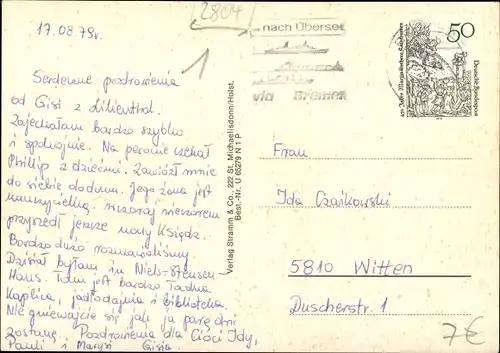 17.08 79r.
2804
1
...nach Übersee
via Bremen
50
Deutsche Bundespost
Serdeczne pozdrowienia
od Gisi z Lilienthal.
Zajechałam bardzo szybko
i spokojnie. Na peronie czekał
Phillip z dziećmi. Zawiózł mnie
do siebie do domu. Jego żona jest
nauczycielką. wczoraj wieczorem
przyszedł jeszcze nowy Ksiądz.
Bardzo dużo rozmawialiśmy.
Dzisiaj byłam in Niels-Stensen-
Haus. Tam jest bardzo ładna
Kaplica, jadłodajnia i biblioteka.
Nie gniewajcie się jak ja parę dni
zostanę. Pozdrowienia dla Cioci Idy,
Pauli i Marysi Gisia
Verlag Stramm & Co., 222 St. Michaelisdonn/Holst.
Best.-Nr. U 65279 N 1 P
Frau
Ida Czaikowski
5810 Witten
Duscherstr. 1
7€